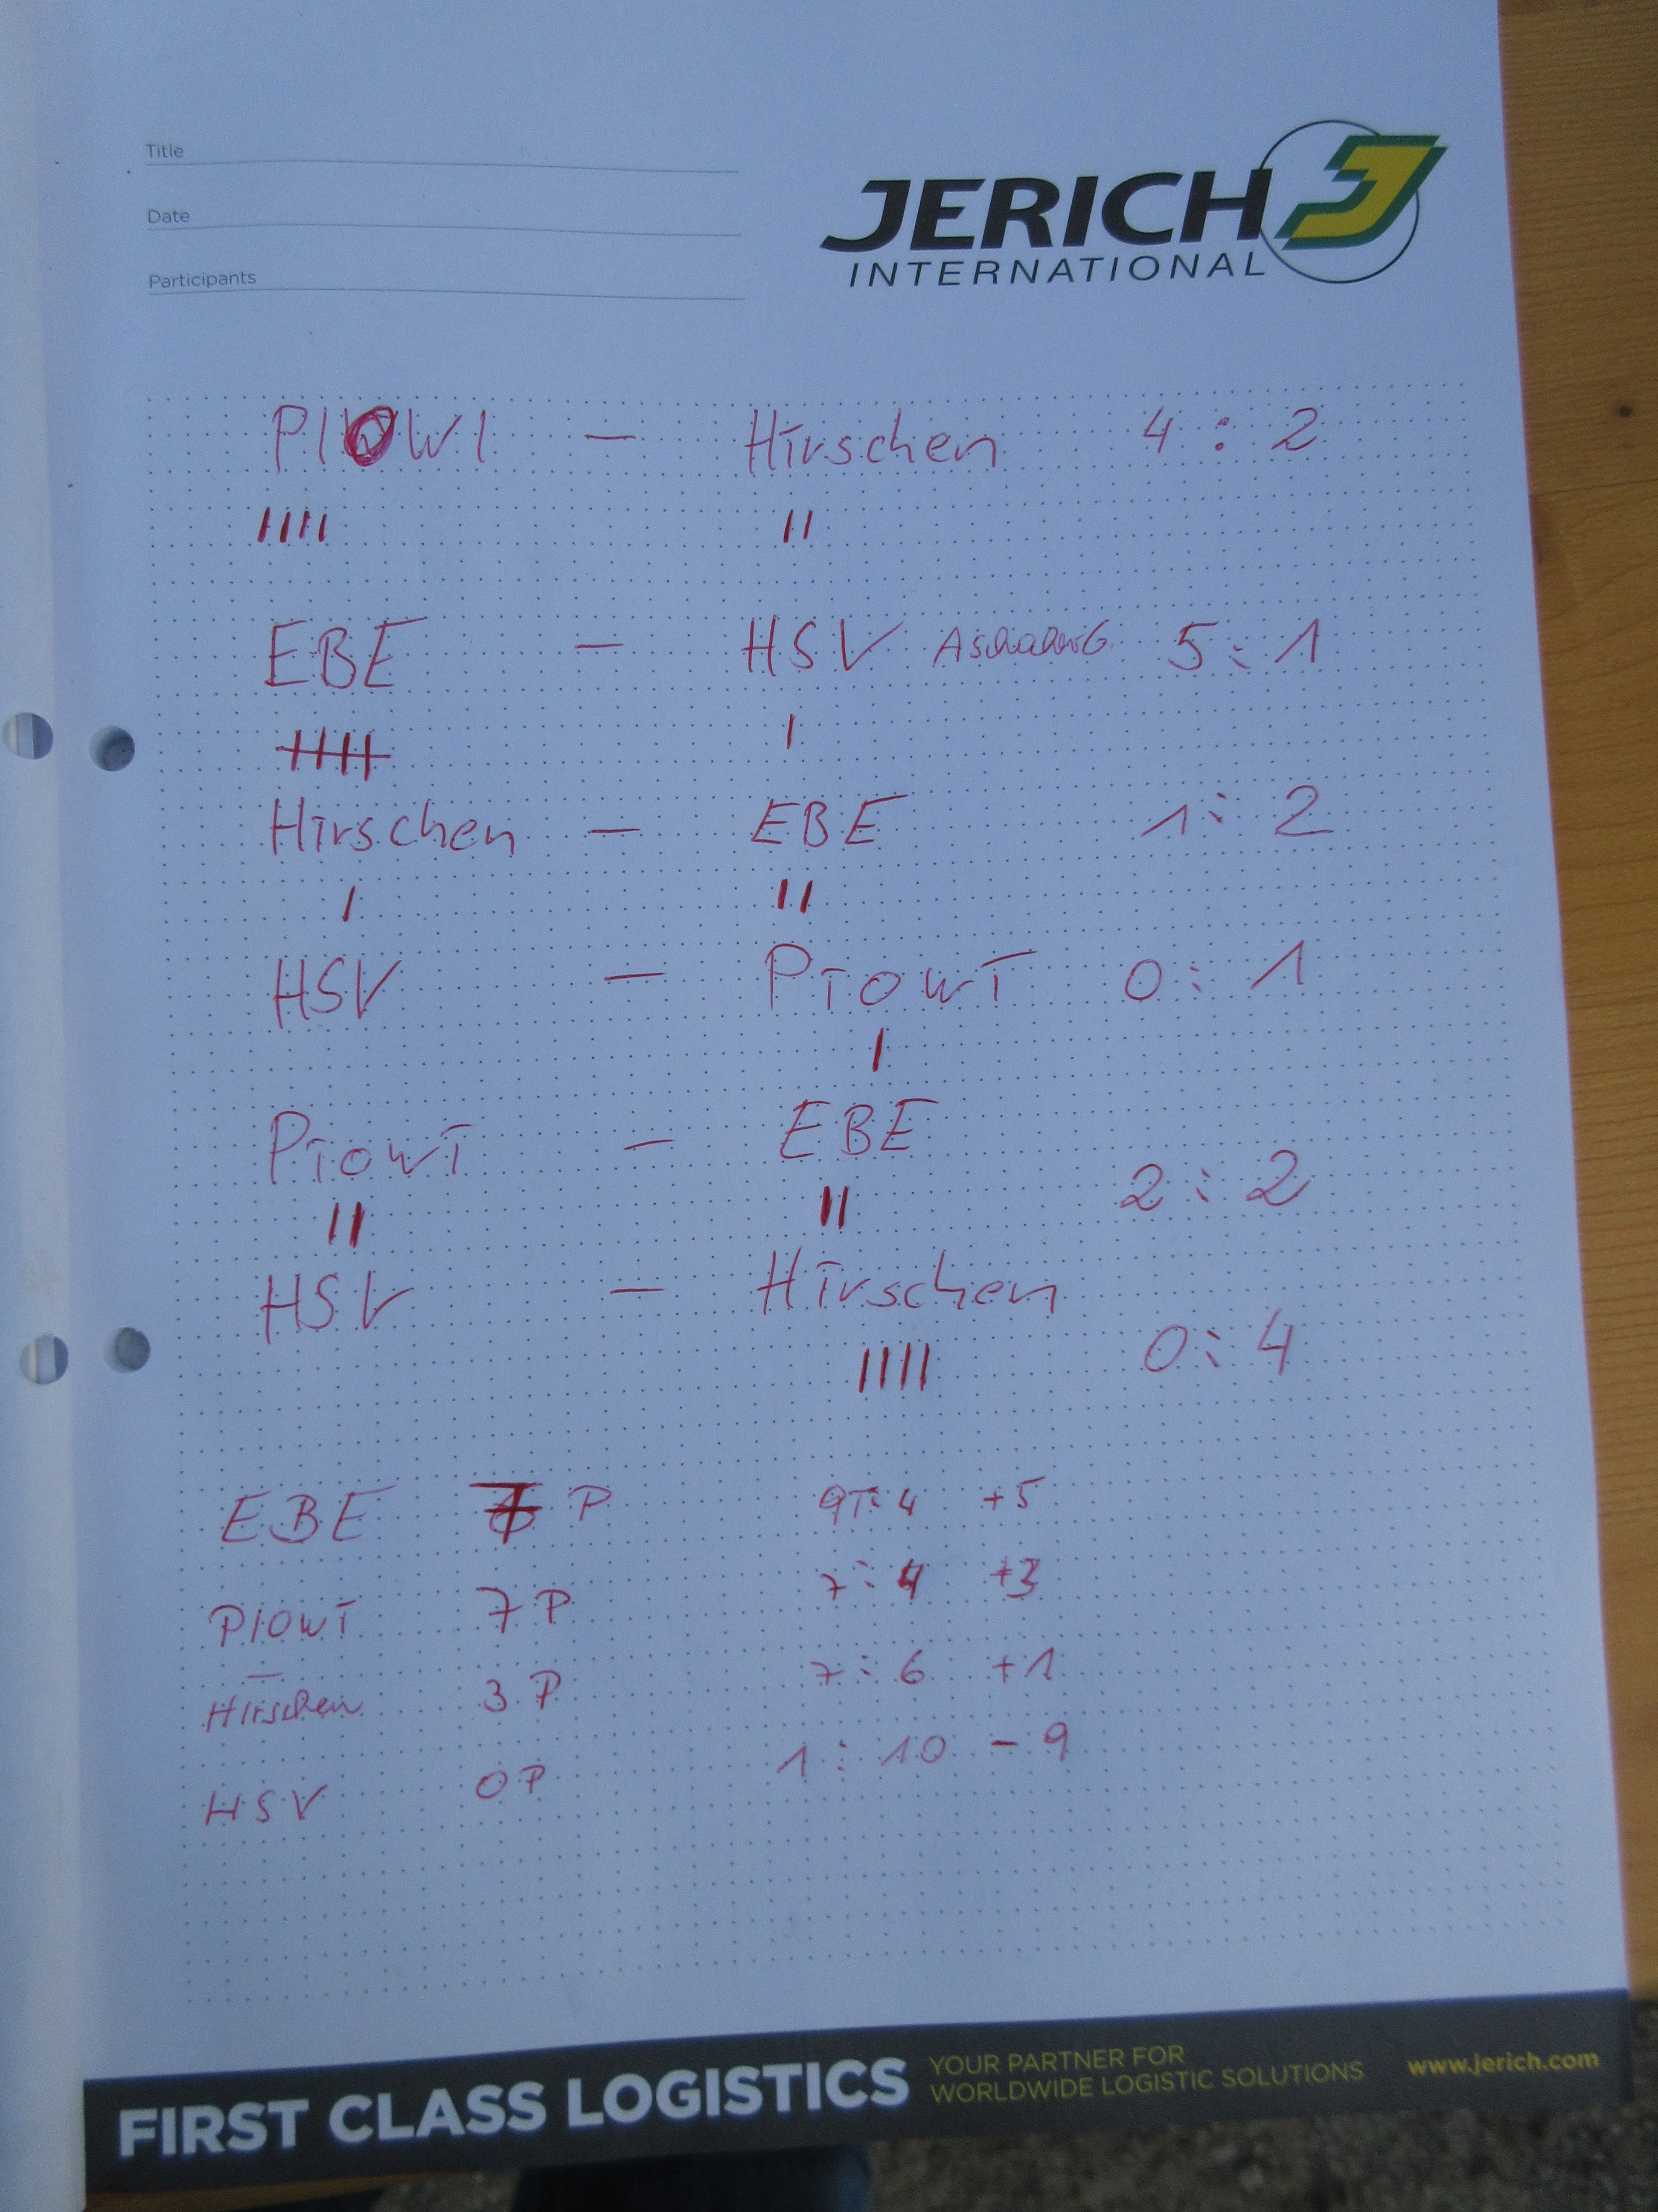 Title
Date
Participants
JERICH
INTERNATIONAL
PIOWI — Hirschen 4 : 2
EBE — HSV 5 : 1
Hirschen — EBE 1 : 2
HSV — PiowI 0 : 1
PiowI — EBE
2 : 2
HSV — Hirschen
0 : 4
EBE 7 P 9 : 4 +5
PIOWI 7 P 7 : 4 +3
Hirschen 3 P 7 : 6 +1
HSV 0 P 1 : 10 - 9
FIRST CLASS LOGISTICS
YOUR PARTNER FOR
WORLDWIDE LOGISTIC SOLUTIONS
www.jerich.com